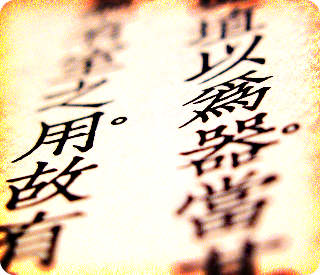 埴以爲器。當其
室之用。故有